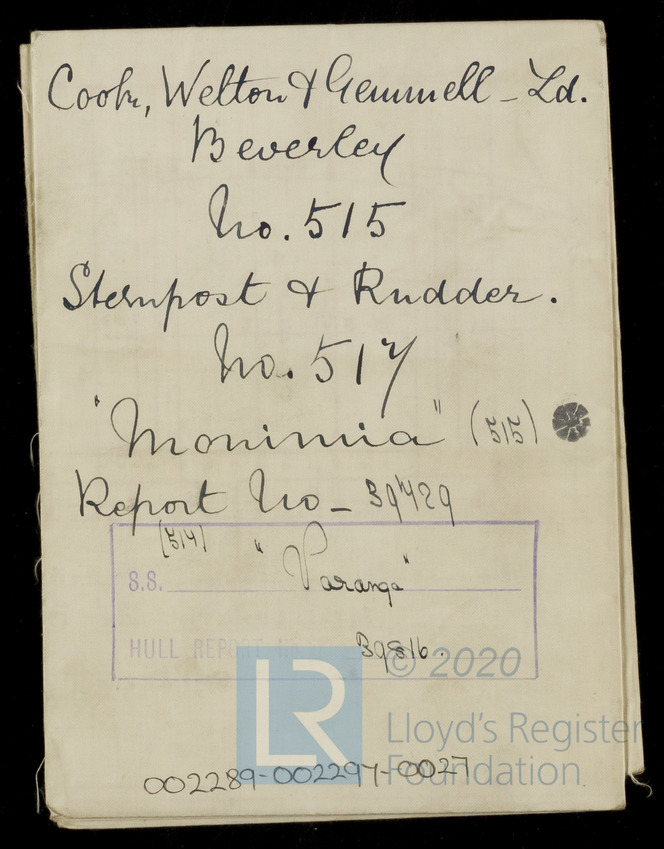 Cook, Welton & Gemmell - Ld.
Beverley
No. 515
Sternpost & Rudder.
No. 517
"Monimia" (515)
Report No - 39429
(517) "Varanga"
S.S.
HULL REPORT No. 39816.
© 2020
LR
Lloyd's Register
Foundation
002289-002297-0027